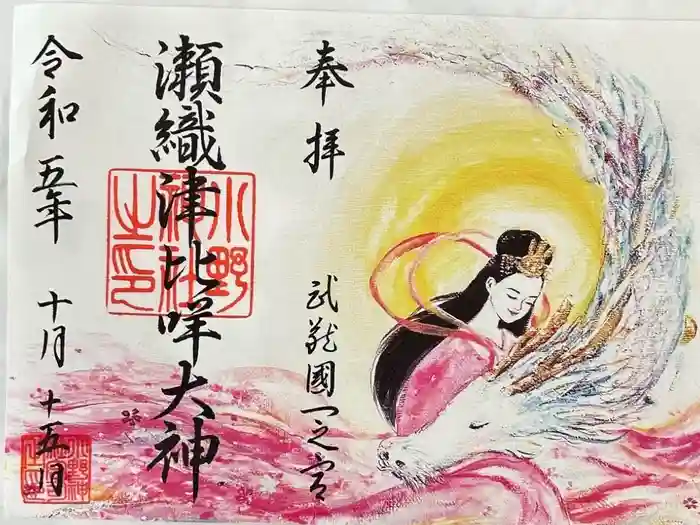 奉拝
武蔵國一之宮
瀬織津比咩大神
小野
神社
之印
令和五年 十月十五日